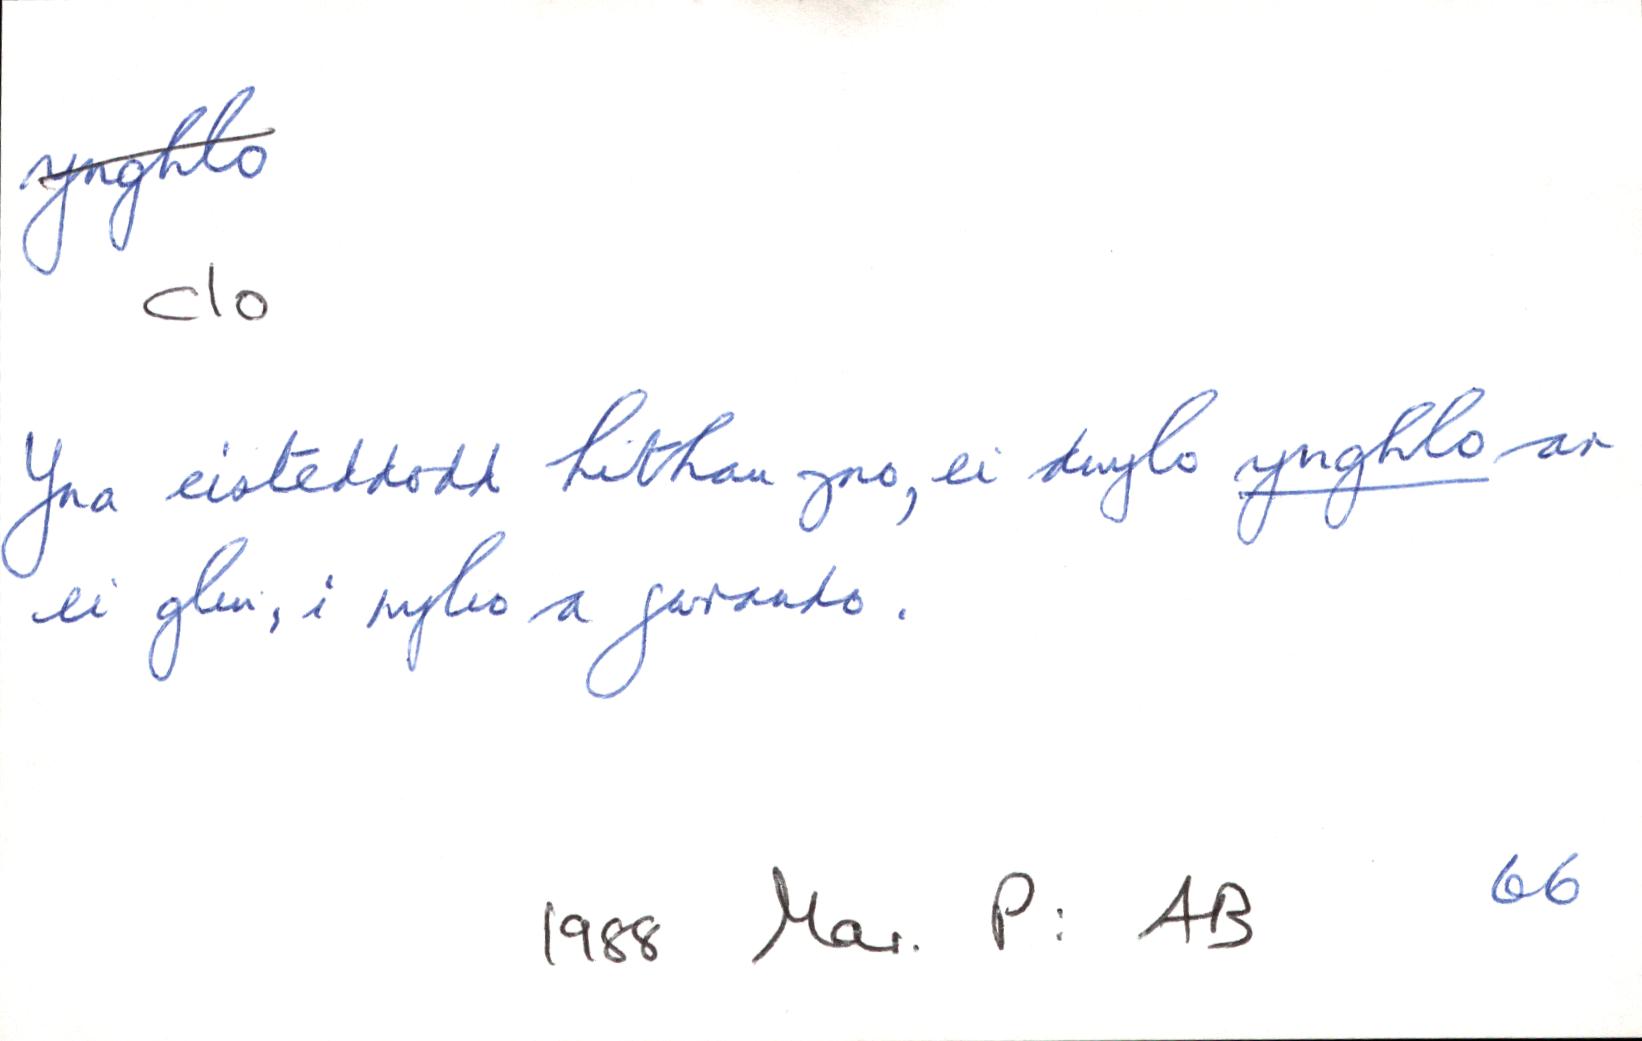 ynghlo
clo
Yna eisteddodd hithau yno, ei dwylo ynghlo ar
ei glin, i wylio a gwrando.
1988 Mar. P: AB 66